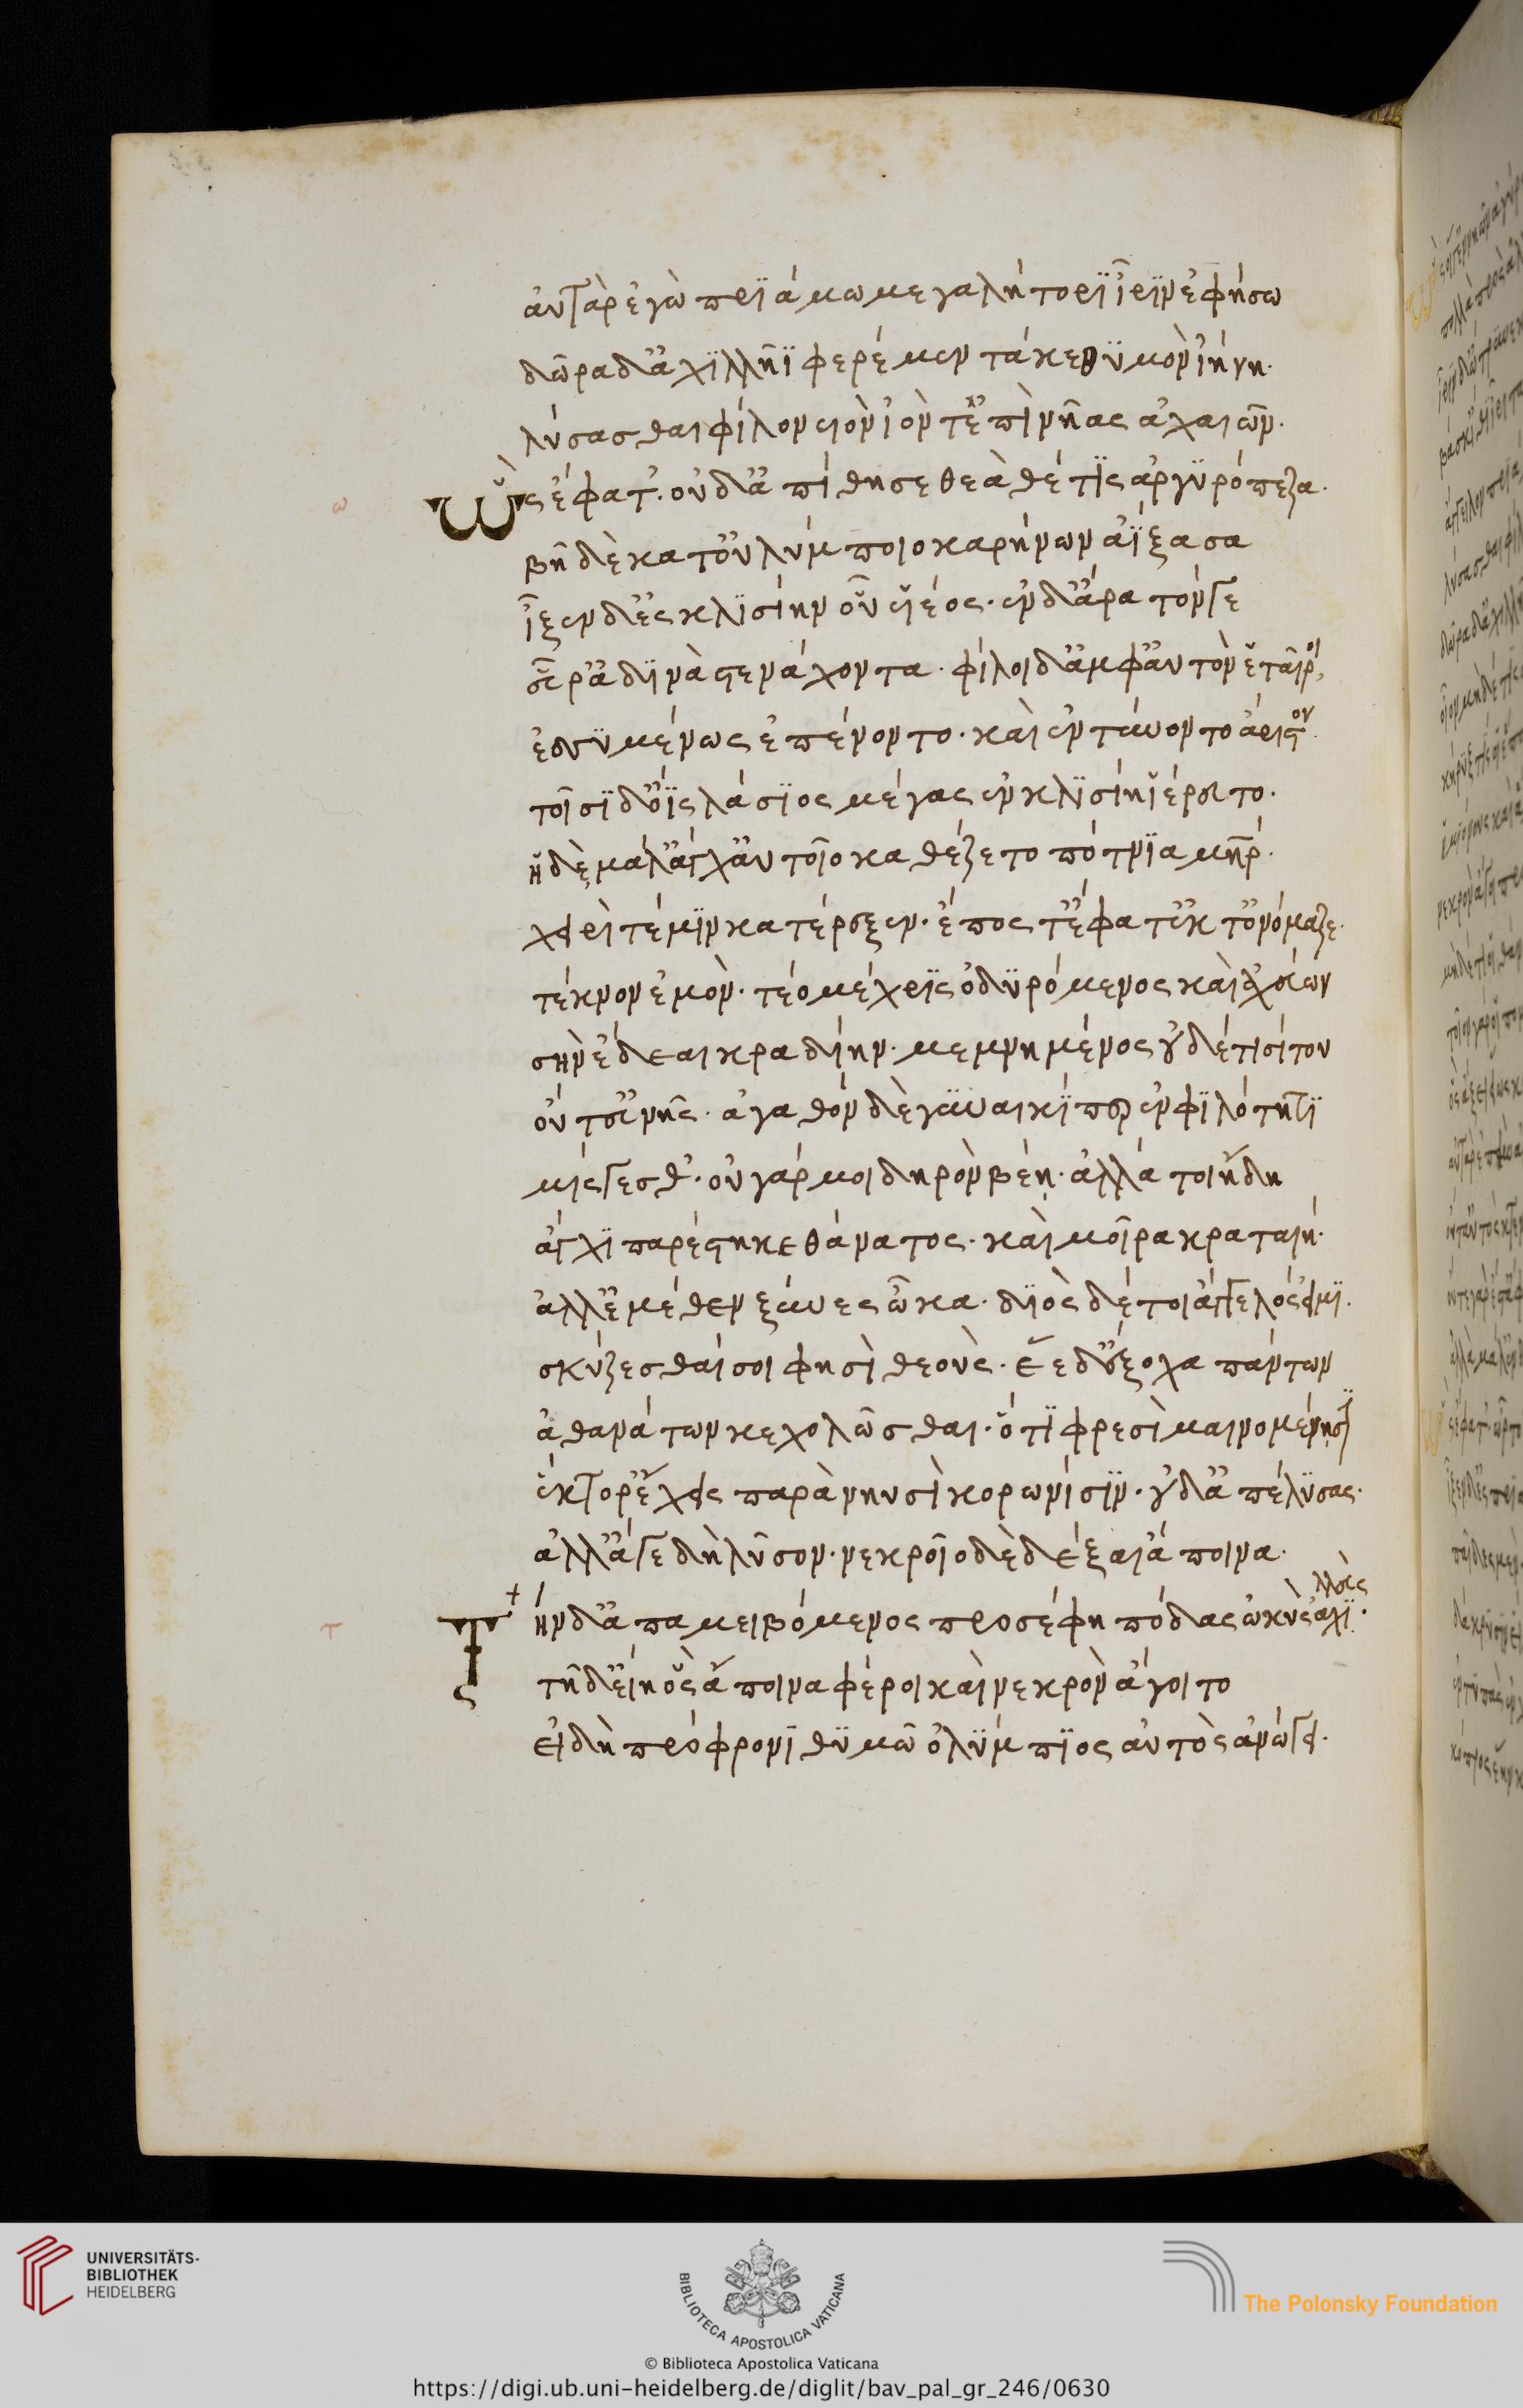 αὐτὰρ ἐγὼ πρϊάμω μεγαλήτορϊ ἶρϊν ἐφήσω
δῶρα δ' ἀχϊλλῆϊ φερέμεν τά κε θϋμὸν ἰήνη.
λύσασθαι φίλον υἱὸν ἰὸντ' ἐπὶ νῆας ἀχαιῶν.
Ὣς ἔφατ'. οὐδ' ἀπίθησε θεὰ θέτϊς ἀργϋρόπεζα.
βῆ δὲ κατ' οὐλύμποιο καρήνων ἀΐξασα
ἷξεν δ' ἐς κλϊσίην οὗ υἱέος. ἐν δ' ἄρα τόνγε
εὗρ' ἁδϊνὰ στενάχοντα. φίλοι δ' ἀμφ' αὐτὸν ἑταῖροι
ἐσσϋμένως ἐπένοντο. καὶ ἐντύνοντο ἄριστον.
τοῖσϊ δ' ὄϊς λάσϊος μέγας ἐν κλϊσίη ἱέρευτο.
ἡ δὲ μάλ' ἄγχ' αὐτοῖο καθέζετο πότνϊα μήτηρ.
χειρί τέ μϊν κατέρεξεν. ἔπος τ' ἔφατ' ἔκ τ' ὀνόμαζε.
τέκνον ἐμὸν. τέο μέχρϊς ὀδϋρόμενος καὶ ἀχεύων
σὴν ἔδεαι κραδίην. μεμνημένος οὐδέ τι σίτου
οὔτ' εὐνῆς. ἀγαθὸν δὲ γϋναικΐ περ ἐν φϊλότητϊ
μίσγεσθ'. οὐ γάρ μοι δηρὸν βέη. ἀλλά τοι ἤδη
ἄγχϊ παρέστηκε θάνατος. καὶ μοῖρα κραταιή.
ἀλλ' ἐμέθεν ξύνες ὦκα. δϊὸς δέ τοι ἄγγελός εἰμϊ.
σκύζεσθαί σοι φησὶ θεοὺς. ἓ ἑ δ' ἔξοχα πάντων
ἀθανάτων κεχολῶσθαι. ὅτϊ φρεσὶ μαινομένησϊ
ἕκτορ' ἔχεις παρὰ νηυσὶ κορωνίσϊν. οὐδ' ἀπέλϋσας.
ἀλλ' ἄγε δὴ λῦσον. νεκροῖο δὲ δέξαι ἄποινα.
Τὴν δ' ἀπαμειβόμενος προσέφη πόδας ὠκὺς ἀχϊλλεὺς.
τῆδ' εἴη ὃς ἄποινα φέροι καὶ νεκρὸν ἄγοιτο
εἰ δὴ πρόφρονϊ θϋμῶ ὀλϋμπϊος αὐτὸς ἀνώγει.
ω
τ
UNIVERSITÄTS-
BIBLIOTHEK
HEIDELBERG
BIBLIOTECA APOSTOLICA VATICANA
The Polonsky Foundation
© Biblioteca Apostolica Vaticana
https://digi.ub.uni-heidelberg.de/diglit/bav_pal_gr_246/0630